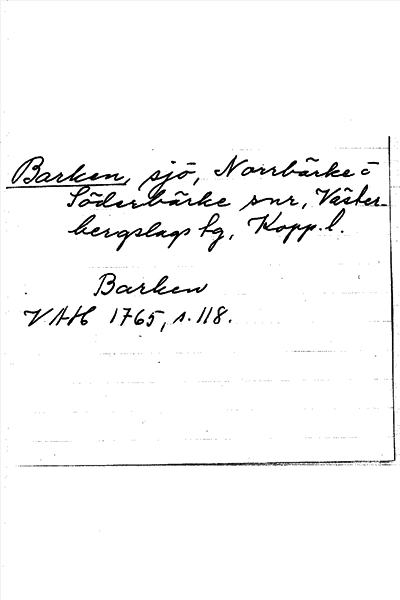 Barken, sjö, Norrbärke o
Söderbärke snr, Väster-
bergslags tg, Kopp. l.
Barken
VAH 1765, s. 118.